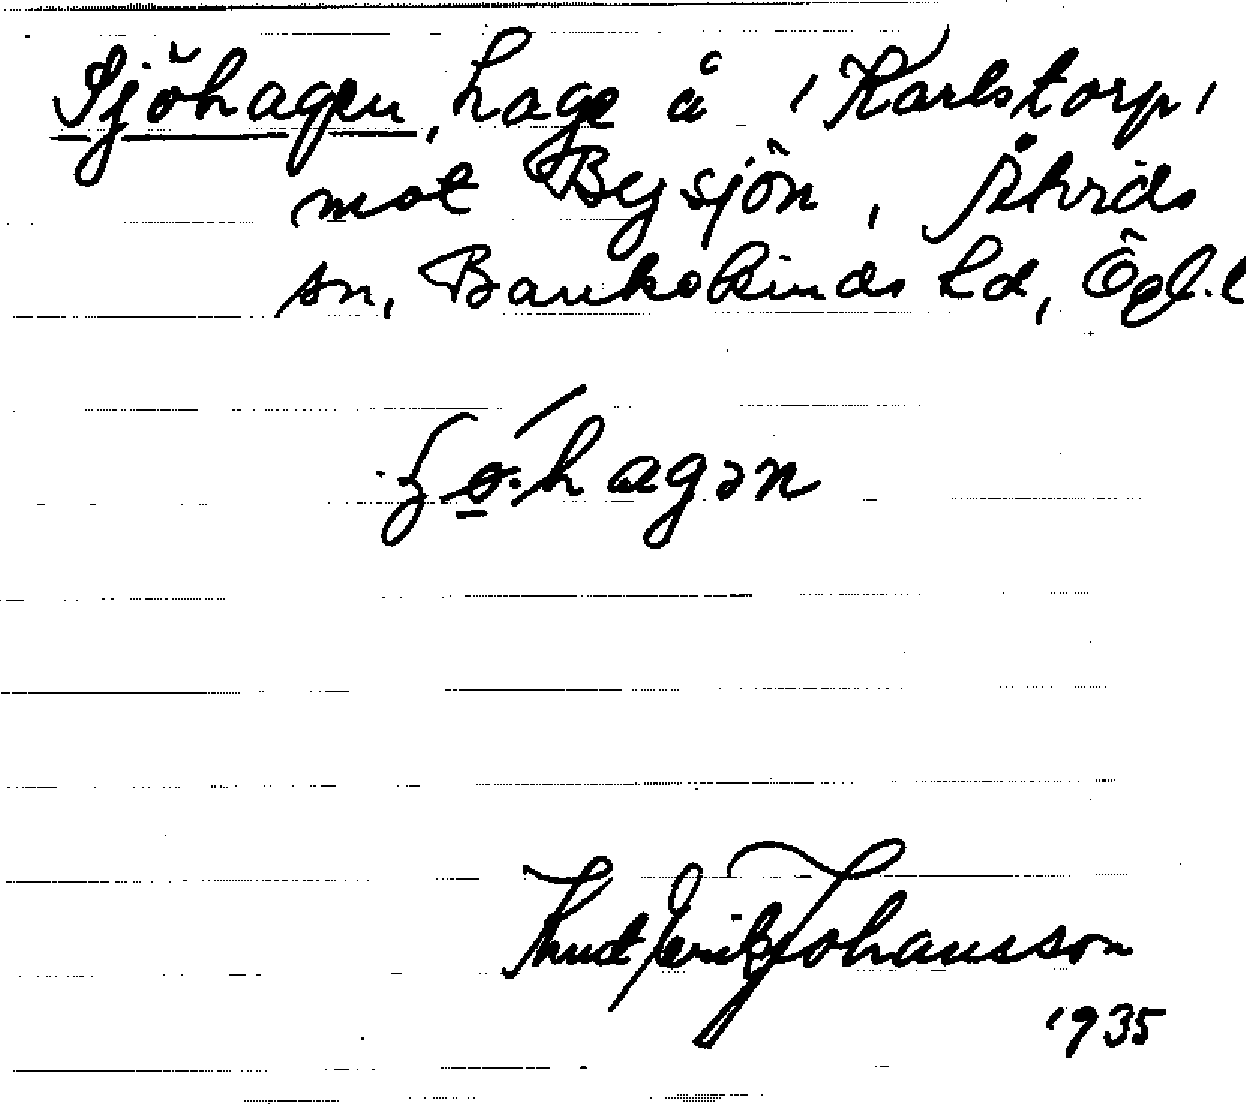 Sjöhagen, hage å Karlstorp,
mot Bysjön, Åtvids
sn, Bankekinds hd, Ögl.
hagən
Knut Erik Johansson
1935